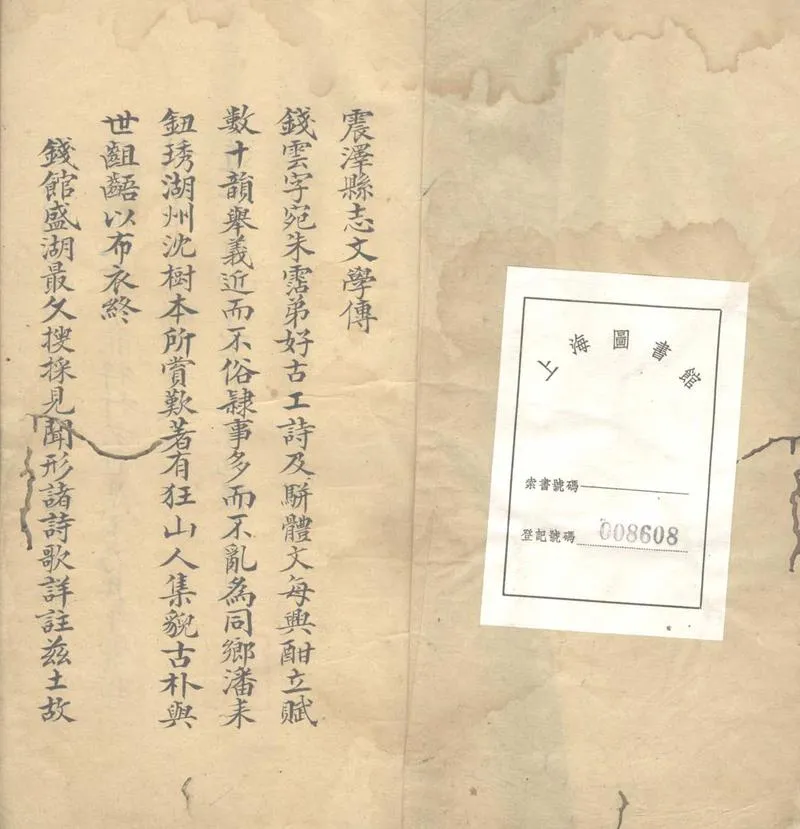 震澤縣志文學傳
錢雲字宛朱霑弟好古工詩及駢體文每興酣立賦
數十韻舉義近而不俗隸事多而不亂為同鄉潘耒
鈕琇湖州沈樹本所賞歎著有狂山人集貌古朴與
世齟齬以布衣終
錢館盛湖最久搜採見聞形諸詩歌詳註茲土故
上海圖書館
索書號碼
登記號碼 008608